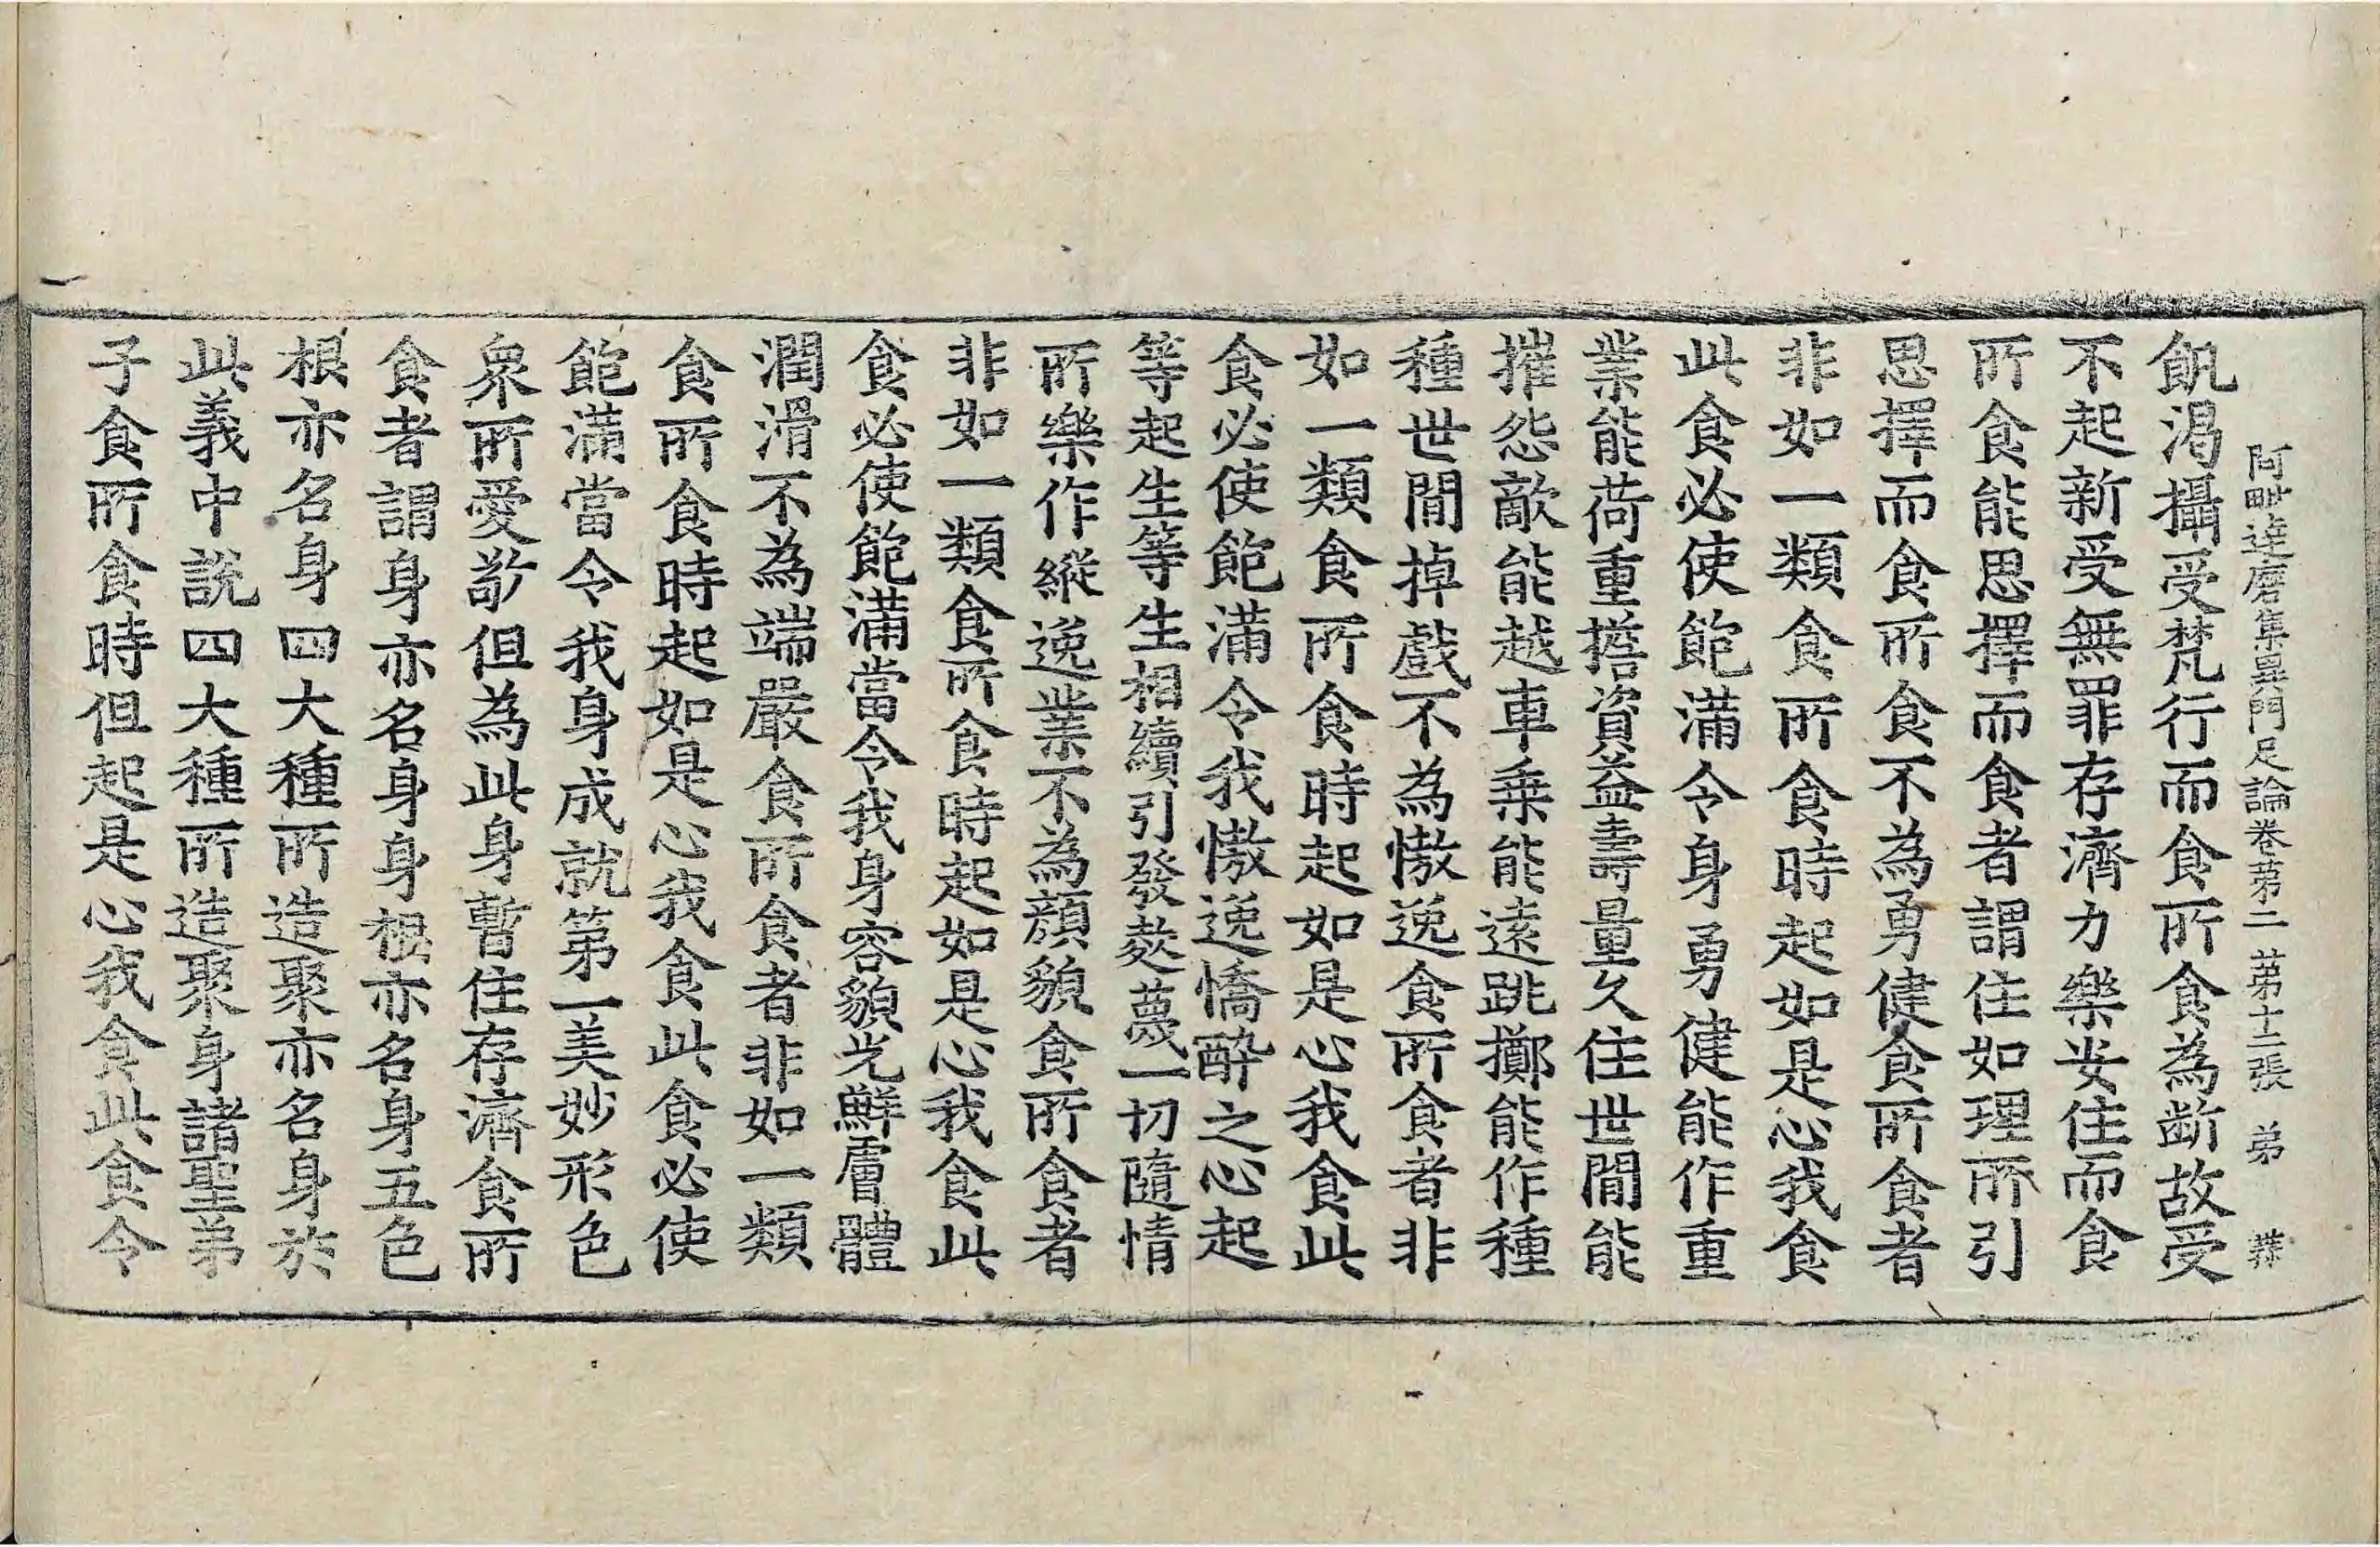 阿毗達磨集異門足論卷第二 第十二張 弟
飢渴攝受梵行而食所食為斷故受
不起新受無罪存濟力樂安住而食
所食能思擇而食者謂住如理所引
思擇而食所食不為勇健食所食者
非如一類食所食時起如是心我食
此食必使飽滿令身勇健能作重
業能荷重擔資益壽量久住世間能
摧怨敵能越車乗能遠跳擲能作種
種世間掉戲不為憿逸食所食者非
如一類食所食時起如是心我食此
食必使飽滿令我憿逸憍醉之心起
等起生等生相續引發趂蔑一切隨情
所樂作縱逸業不為顏貌食所食者
非如一類食所食時起如是心我食此
食必使飽滿當令我身容貌光鮮膚體
潤滑不為端嚴食所食者非如一類
食所食時起如是心我食此食必使
飽滿當令我身成就第一美妙形色
衆所愛敬但為此身暫住存濟食所
食者謂身亦名身身根亦名身五色
根亦名身四大種所造聚亦名身於
此義中說四大種所造聚身諸聖弟
子食所食時但起是心我食此食令